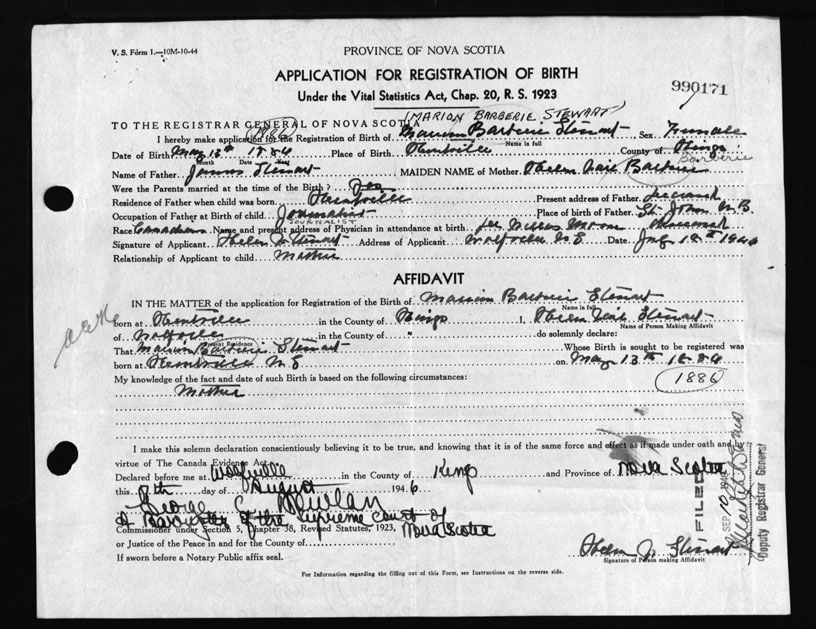 V. S. Form 1.—10M-10-44
PROVINCE OF NOVA SCOTIA
APPLICATION FOR REGISTRATION OF BIRTH
990171
Under the Vital Statistics Act, Chap. 20, R. S. 1923
(MARION BARBERIE STEWART)
TO THE REGISTRAR GENERAL OF NOVA SCOTIA
1886
I hereby make application for the Registration of Birth of Marion Barberie Stewart Sex Female
Name in full
Date of Birth May 13th 1884 Place of Birth Kentville County of Kings
Month Date Year
Barberie
Name of Father James Stewart MAIDEN NAME of Mother Helen Barberie
Were the Parents married at the time of the Birth? Yes
Residence of Father when child was born. Kentville Present address of Father. deceased
Occupation of Father at Birth of child. Journalist Place of birth of Father. St. John N.B.
JOURNALIST
Race Canadian Name and present address of Physician in attendance at birth. deceased
Signature of Applicant Helen J. Stewart Address of Applicant Wolfville N S Date
Relationship of Applicant to child. Mother
AFFIDAVIT
IN THE MATTER of the application for Registration of the Birth of Marion Barberie Stewart
Name in full
born at Kentville in the County of Kings I, Helen Stewart
Name of Person Making Affidavit
of Wolfville in the County of " do solemnly declare:
Present Residence
That Marion Barberie Stewart Whose Birth is sought to be registered was
born at Kentville N S on May 13th 1884
1886
My knowledge of the fact and date of such Birth is based on the following circumstances:
Mother
I make this solemn declaration conscientiously believing it to be true, and knowing that it is of the same force and effect as if made under oath and by
virtue of The Canada Evidence Act.
Declared before me at Wolfville in the County of Kings and Province of Nova Scotia
this day of August 1946
George C. Nowlan
A Barrister of the Supreme Court of
Commissioner under Section 5, Chapter 38, Revised Statutes, 1923, Nova Scotia
or Justice of the Peace in and for the County of
If sworn before a Notary Public affix seal.
Helen J. Stewart
Signature of Person making Affidavit
For Information regarding the filling out of this Form, see Instructions on the reverse side.
FILED
SEP 10 1946
Deputy Registrar General